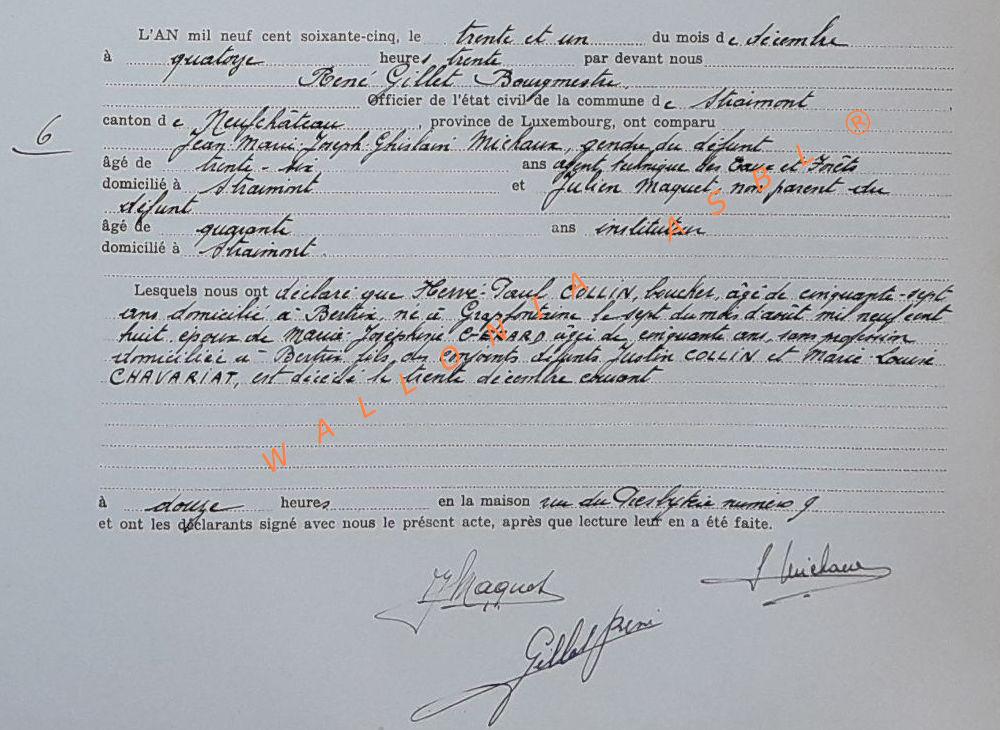 L'AN mil neuf cent soixante-cinq, le trente et un du mois de décembre
à quatorze heures trente par devant nous
René Gillet Bourgmestre
Officier de l'état civil de la commune de Straimont
canton de Neufchâteau, province de Luxembourg, ont comparu
6
Jean-Marie-Joseph-Ghislain Michaux, gendre du défunt
âgé de trente-six ans agent technique des Eaux et Forêts
domicilié à Straimont et Julien Maquet, non parent du
défunt
âgé de quarante ans instituteur
domicilié à Straimont.
Lesquels nous ont déclaré que Hervé-Paul COLLIN, boucher, âgé de cinquante-sept
ans domicilié à Bertrix, né à Grapfontaine le sept du mois d'août mil neuf cent
huit, époux de Marie-Joséphine âgée de cinquante ans, sans profession
domiciliée à Bertrix fils des conjoints défunts Justin COLLIN et Marie-Louise
CHAVARIAT, est décédé le trente décembre courant
à douze heures en la maison rue du Presbytère numéro 9
et ont les déclarants signé avec nous le présent acte, après que lecture leur en a été faite.
J Maquet
J Michaux
Gillet René
WALLONIA ASBL ®